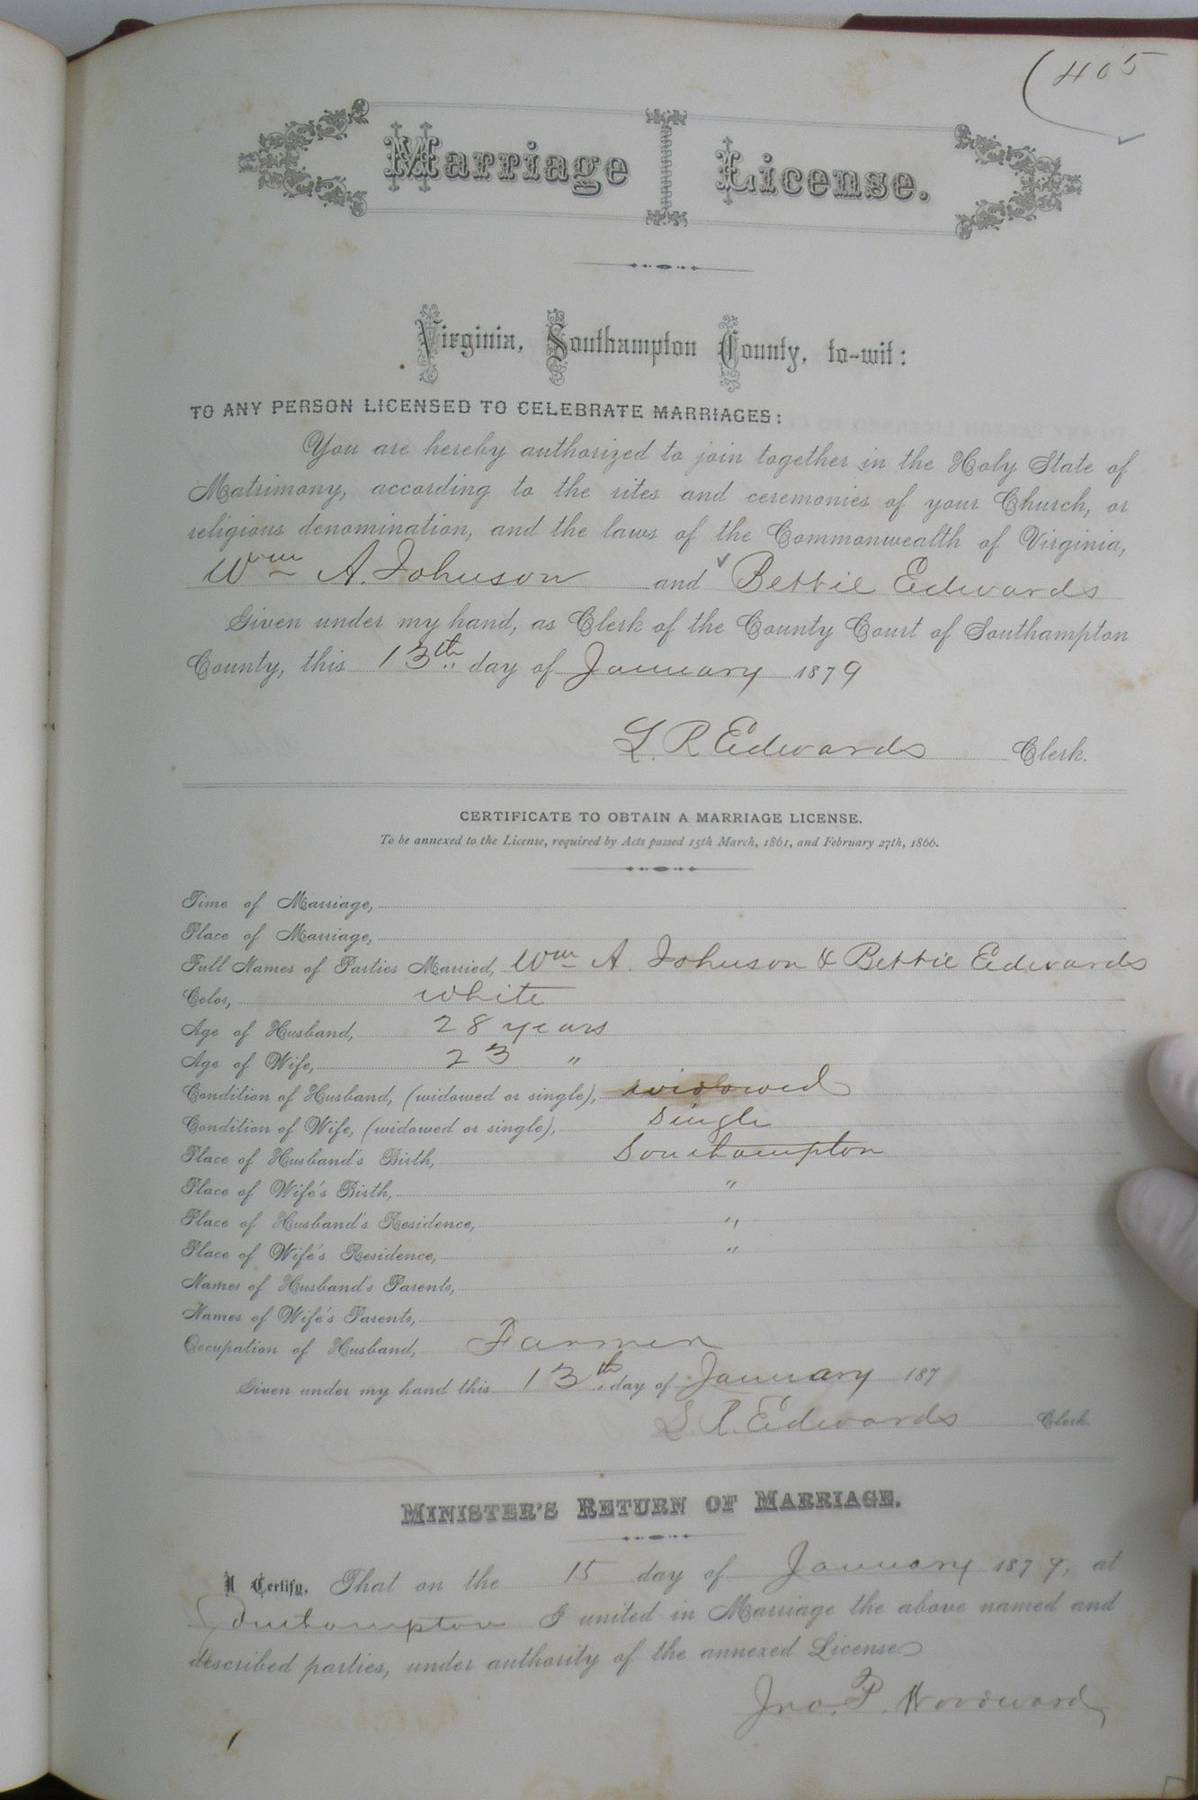 405
Marriage License.
Virginia, Southampton County, to-wit:
TO ANY PERSON LICENSED TO CELEBRATE MARRIAGES:
You are hereby authorized to join together in the Holy State of
Matrimony, according to the rites and ceremonies of your Church, or
religious denomination, and the laws of the Commonwealth of Virginia,
Wm A. Johnson and Bettie Edwards
Given under my hand, as Clerk of the County Court of Southampton
County, this 13th day of January 1879
L. R. Edwards Clerk.
CERTIFICATE TO OBTAIN A MARRIAGE LICENSE.
To be annexed to the License, required by Acts passed 15th March, 1861, and February 27th, 1866.
Time of Marriage,
Place of Marriage,
Full Names of Parties Married, Wm A. Johnson & Bettie Edwards
Color, White
Age of Husband, 28 years
Age of Wife, 23 "
Condition of Husband, (widowed or single), widowed
Condition of Wife, (widowed or single), Single
Place of Husband's Birth, Southampton
Place of Wife's Birth, "
Place of Husband's Residence, "
Place of Wife's Residence, "
Names of Husband's Parents,
Names of Wife's Parents,
Occupation of Husband, Farmer
Given under my hand this 13th day of January 187
L. R. Edwards Clerk.
MINISTER'S RETURN OF MARRIAGE.
I Certify, That on the 15 day of January 1879, at
Southampton I united in Marriage the above named and
described parties, under authority of the annexed License
Jno. P. Woodward